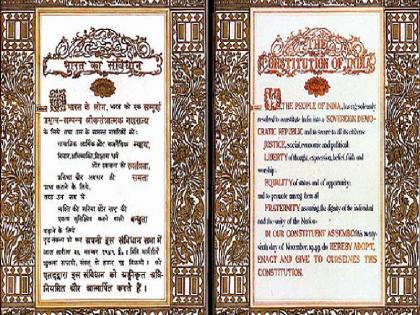 भारत का संविधान
हम भारत के लोग, भारत को एक सम्पूर्ण
प्रभुत्व-सम्पन्न लोकतंत्रात्मक गणराज्य
के लिये, तथा उस के समस्त नागरिकों को:
सामाजिक, आर्थिक और राजनैतिक न्याय,
विचार, अभिव्यक्ति, विश्वास, धर्म
और उपासना की स्वतंत्रता,
प्रतिष्ठा और अवसर की समता
प्राप्त कराने के लिये,
तथा उन सब में
व्यक्ति की गरिमा और राष्ट्र की
एकता सुनिश्चित करने वाली बन्धुता
बढ़ाने के लिये
अपनी इस संविधान सभा में
आज तारीख
एतद्द्वारा इस संविधान को अङ्गीकृत, अधि-
नियमित और आत्मार्पित करते हैं।
THE
CONSTITUTION OF INDIA
WE, THE PEOPLE OF INDIA, having solemnly
resolved to constitute India into a SOVEREIGN DEMO-
CRATIC REPUBLIC and to secure to all its citizens:
JUSTICE, social, economic and political;
LIBERTY of thought, expression, belief, faith and
worship;
EQUALITY of status and of opportunity;
and to promote among them all
FRATERNITY assuring the dignity of the individual
and the unity of the Nation;
IN OUR CONSTITUENT ASSEMBLY this twenty-
sixth day of November, 1949, do HEREBY ADOPT,
ENACT AND GIVE TO OURSELVES THIS
CONSTITUTION.